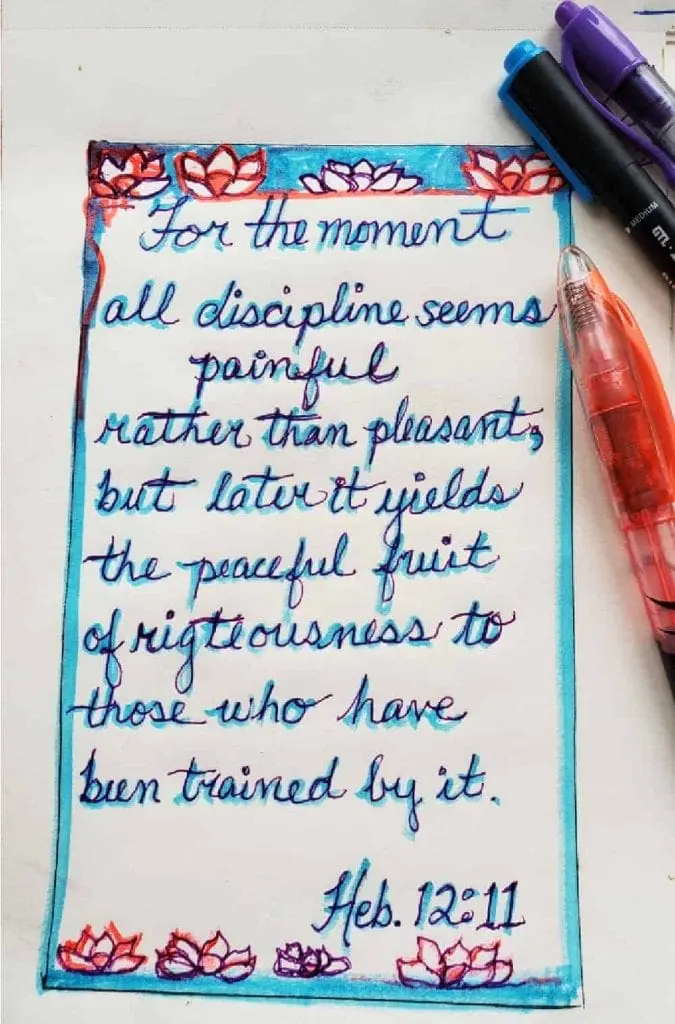 For the moment
all discipline seems
painful
rather than pleasant,
but later it yields
the peaceful fruit
of rigteousness to
those who have
been trained by it.
Heb. 12:11
MEDIUM